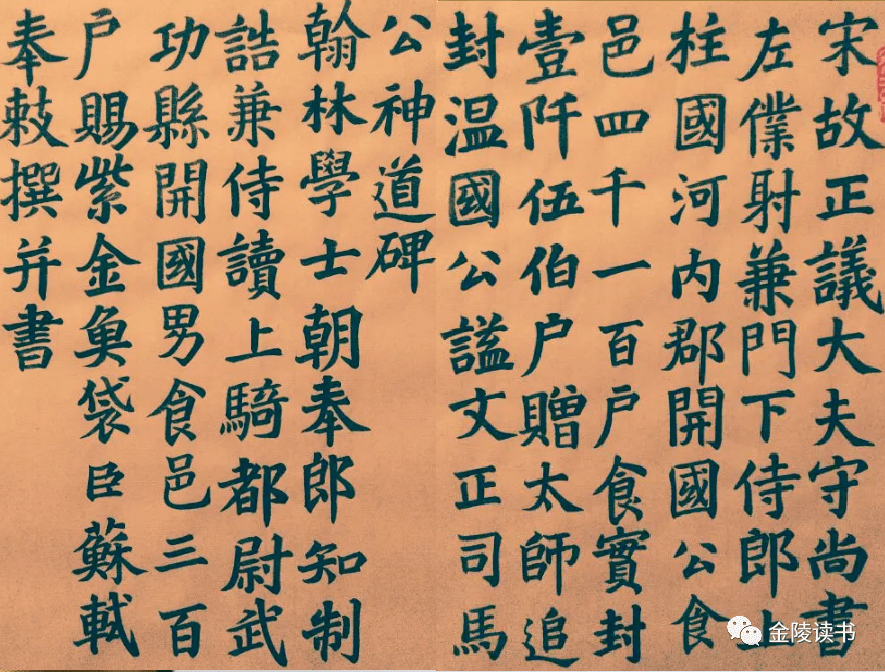 宋故正議大夫守尚書
左僕射兼門下侍郎上
柱國河内郡開國公食
邑四千一百户食實封
壹阡伍伯户贈太師追
封温國公謚文正司馬
公神道碑
翰林學士朝奉郎知制
誥兼侍讀上騎都尉武
功縣開國男食邑三百
户賜紫金魚袋臣蘇軾
奉敕撰并書
金陵读书